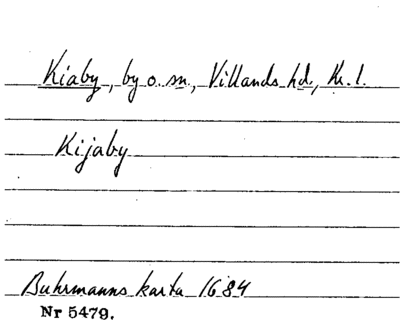 Kiaby, by o. sn, Villands hd, Kr. l.
Kijaby
Buhrmanns karta 1684
Nr 5479.